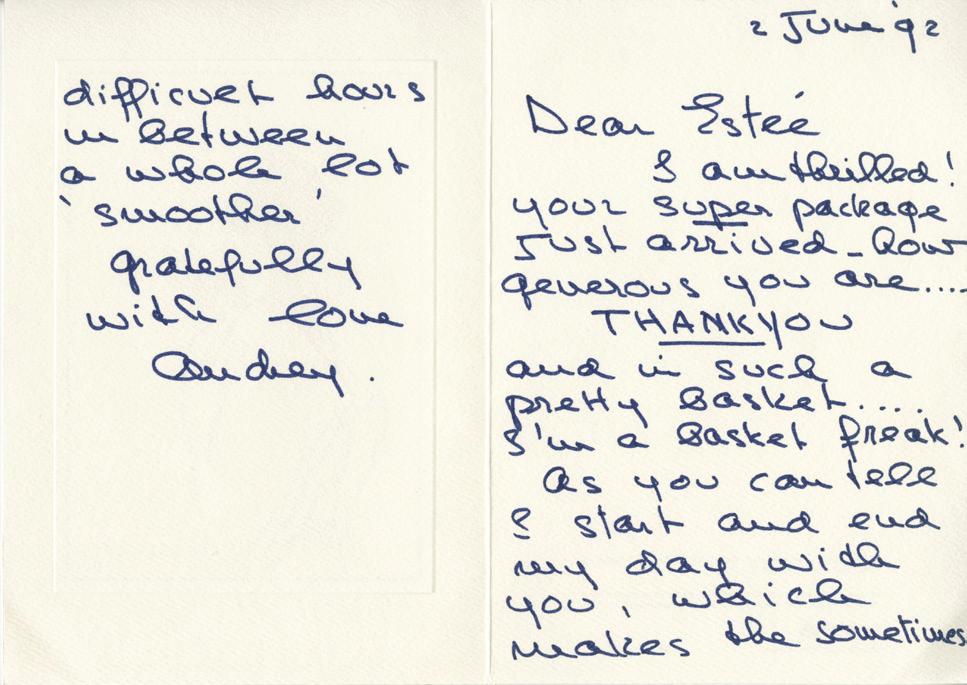 2 June '92
Dear Estée
I am thrilled!
your super package
Just arrived - How
generous you are....
THANKYOU
and in such a
pretty basket....
I'm a basket freak!
As you can tell
I start and end
my day with
you, which
makes the sometimes
difficult hours
in between
a whole lot
'smoother'
gratefully
with love
Audrey.